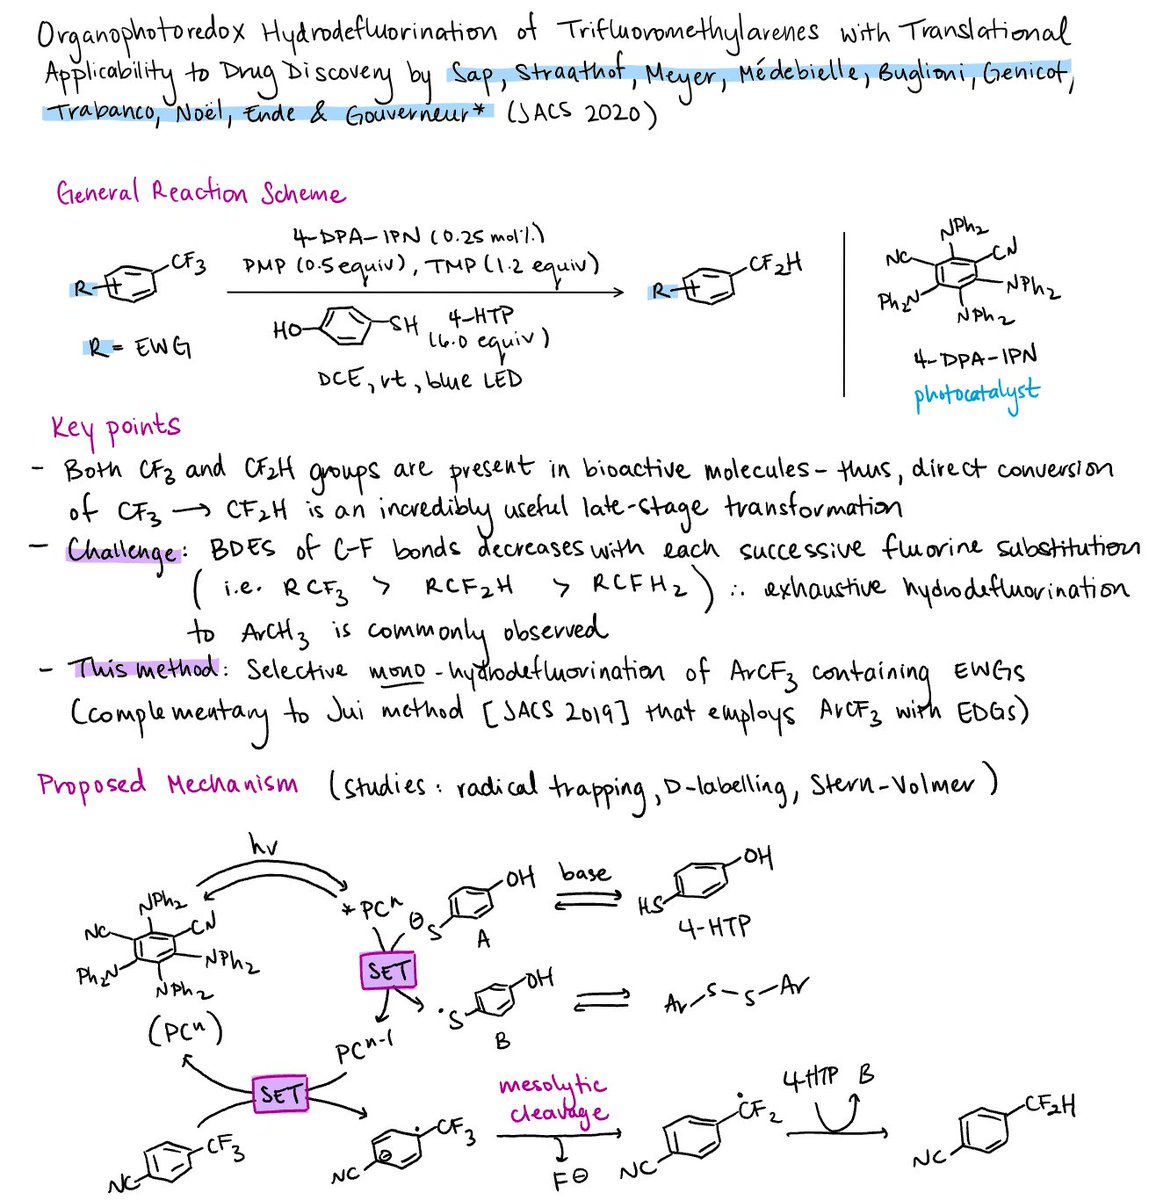 Organophotoredox Hydrodefluorination of Trifluoromethylarenes with Translational
Applicability to Drug Discovery by Sap, Straathof, Meyer, Médebielle, Buglioni, Genicot,
Trabanco, Noël, Ende & Gouverneur* (JACS 2020)
General Reaction Scheme
4-DPA-IPN (0.25 mol%)
PMP (0.5 equiv), TMP (1.2 equiv)
R
CF3
HO
SH
4-HTP
(6.0 equiv)
DCE, rt, blue LED
R = EWG
R
CF2H
NPh2
NC
CN
Ph2N
NPh2
NPh2
4-DPA-IPN
photocatalyst
Key points
- Both CF3 and CF2H groups are present in bioactive molecules - thus, direct conversion
of CF3 → CF2H is an incredibly useful late-stage transformation
- Challenge: BDES of C-F bonds decreases with each successive fluorine substitution
(i.e. RCF3 > RCF2H > RCFH2) ∴ exhaustive hydrodefluorination
to ArCH3 is commonly observed
- This method: Selective mono-hydrodefluorination of ArCF3 containing EWGs
(complementary to Jui method [JACS 2019] that employs ArCF3 with EDGs)
Proposed Mechanism (studies: radical trapping, D-labelling, Stern-Volmer)
hv
NPh2
NC
CN
Ph2N
NPh2
NPh2
(PCⁿ)
*PCⁿ
⊖S
OH
A
base
HS
OH
4-HTP
SET
•S
OH
B
Ar-S-S-Ar
PCⁿ⁻¹
SET
NC
CF3
NC
⊖
•
CF3
mesolytic
cleavage
F⊖
NC
ĊF2
4-HTP B
NC
CF2H